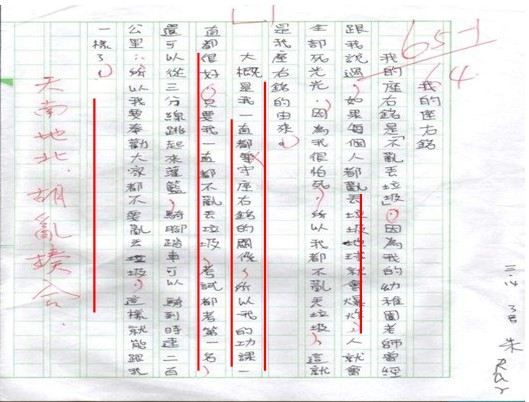 我的座右銘
我的座右銘是「不亂丟垃圾」,因為我的幼稚園老師曾經
跟我說過,如果每個人都亂丟垃圾地球就會爆炸,人就會
全部死光光。因為我很怕死,所以我都不亂丟垃圾,這就
是我座右銘的由來。
大概是我一直都遵守座右銘的關係,所以我的功課一
直都很好。只要我一直都不亂丟垃圾,考試都考第一名,
還可以從三分線跳起來灌籃,騎腳踏車可以騎到時速二百
公里,所以我要奉勸大家都不要亂丟垃圾,這樣就能跟我
一樣了。
天南地北,胡亂接合.
65-1
64.
朱